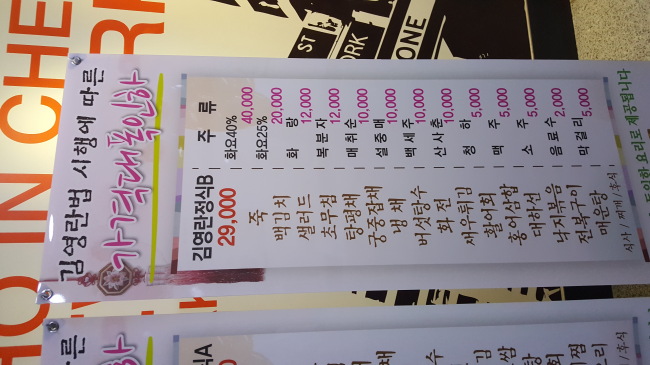 김영란법 시행에 따른
가격대폭인하
김영란정식B
29,000
죽
백김치
샐러드
초무침
탕평채
궁중잡채
냉채
버섯탕수
화전
새우튀김
활어회
홍어삼합
대하선
낙지볶음
전복구이
매운탕
식사 / 찌개 /후식
주 류
화요40% 40,000
화요25% 20,000
화 랑 12,000
복분자 12,000
매취순 10,000
설중매 10,000
백세주 10,000
산사춘 10,000
청 하 5,000
맥 주 5,000
소 주 5,000
음료수 2,000
막걸리 5,000
동일한 요리로 제공됩니다
따른
식A
/후식
HO IN CHE
ST
ONE